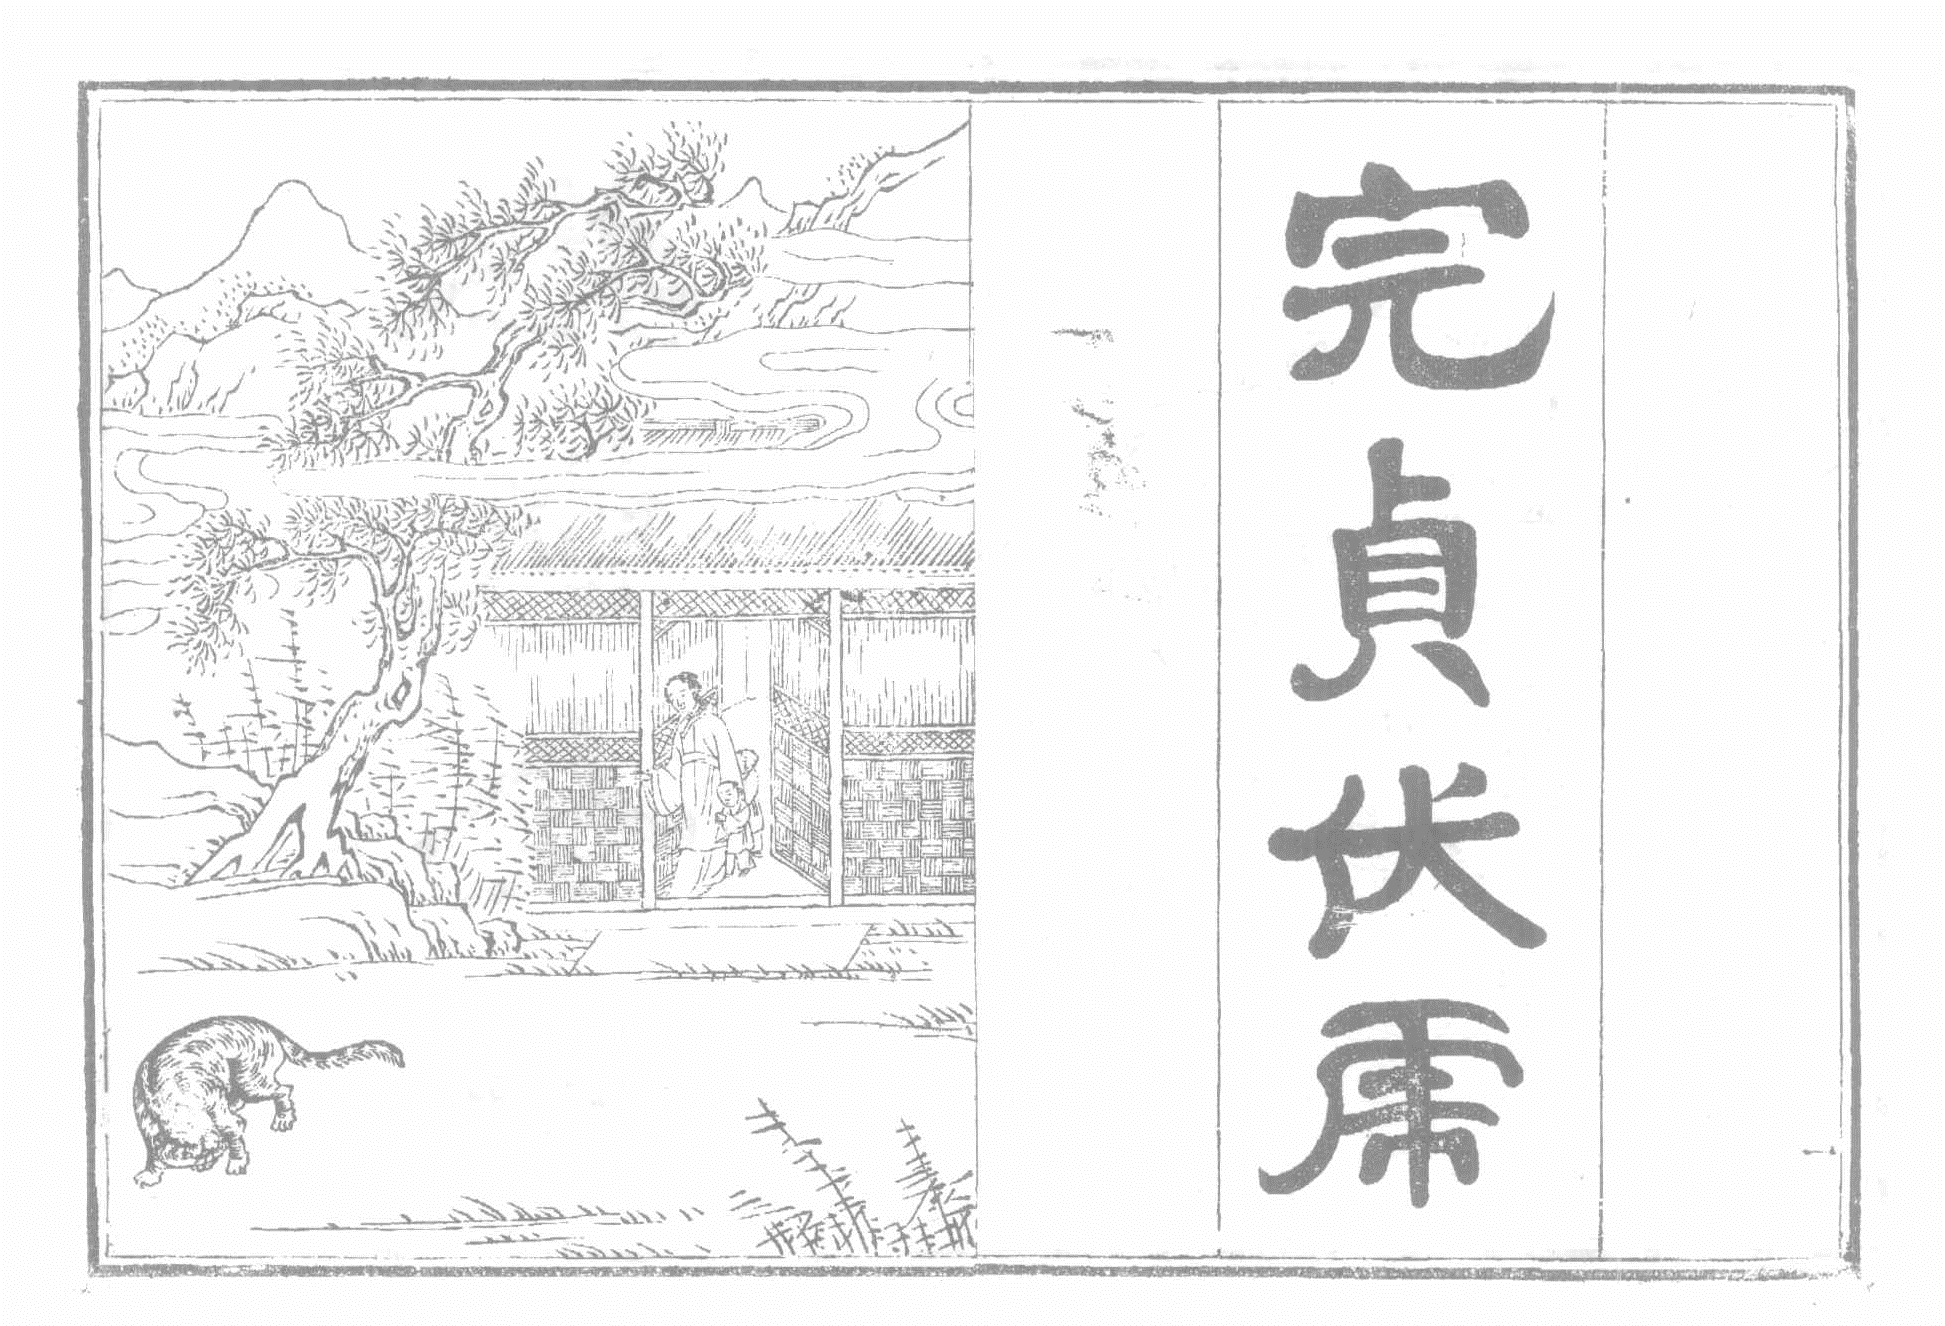 完貞伏虎